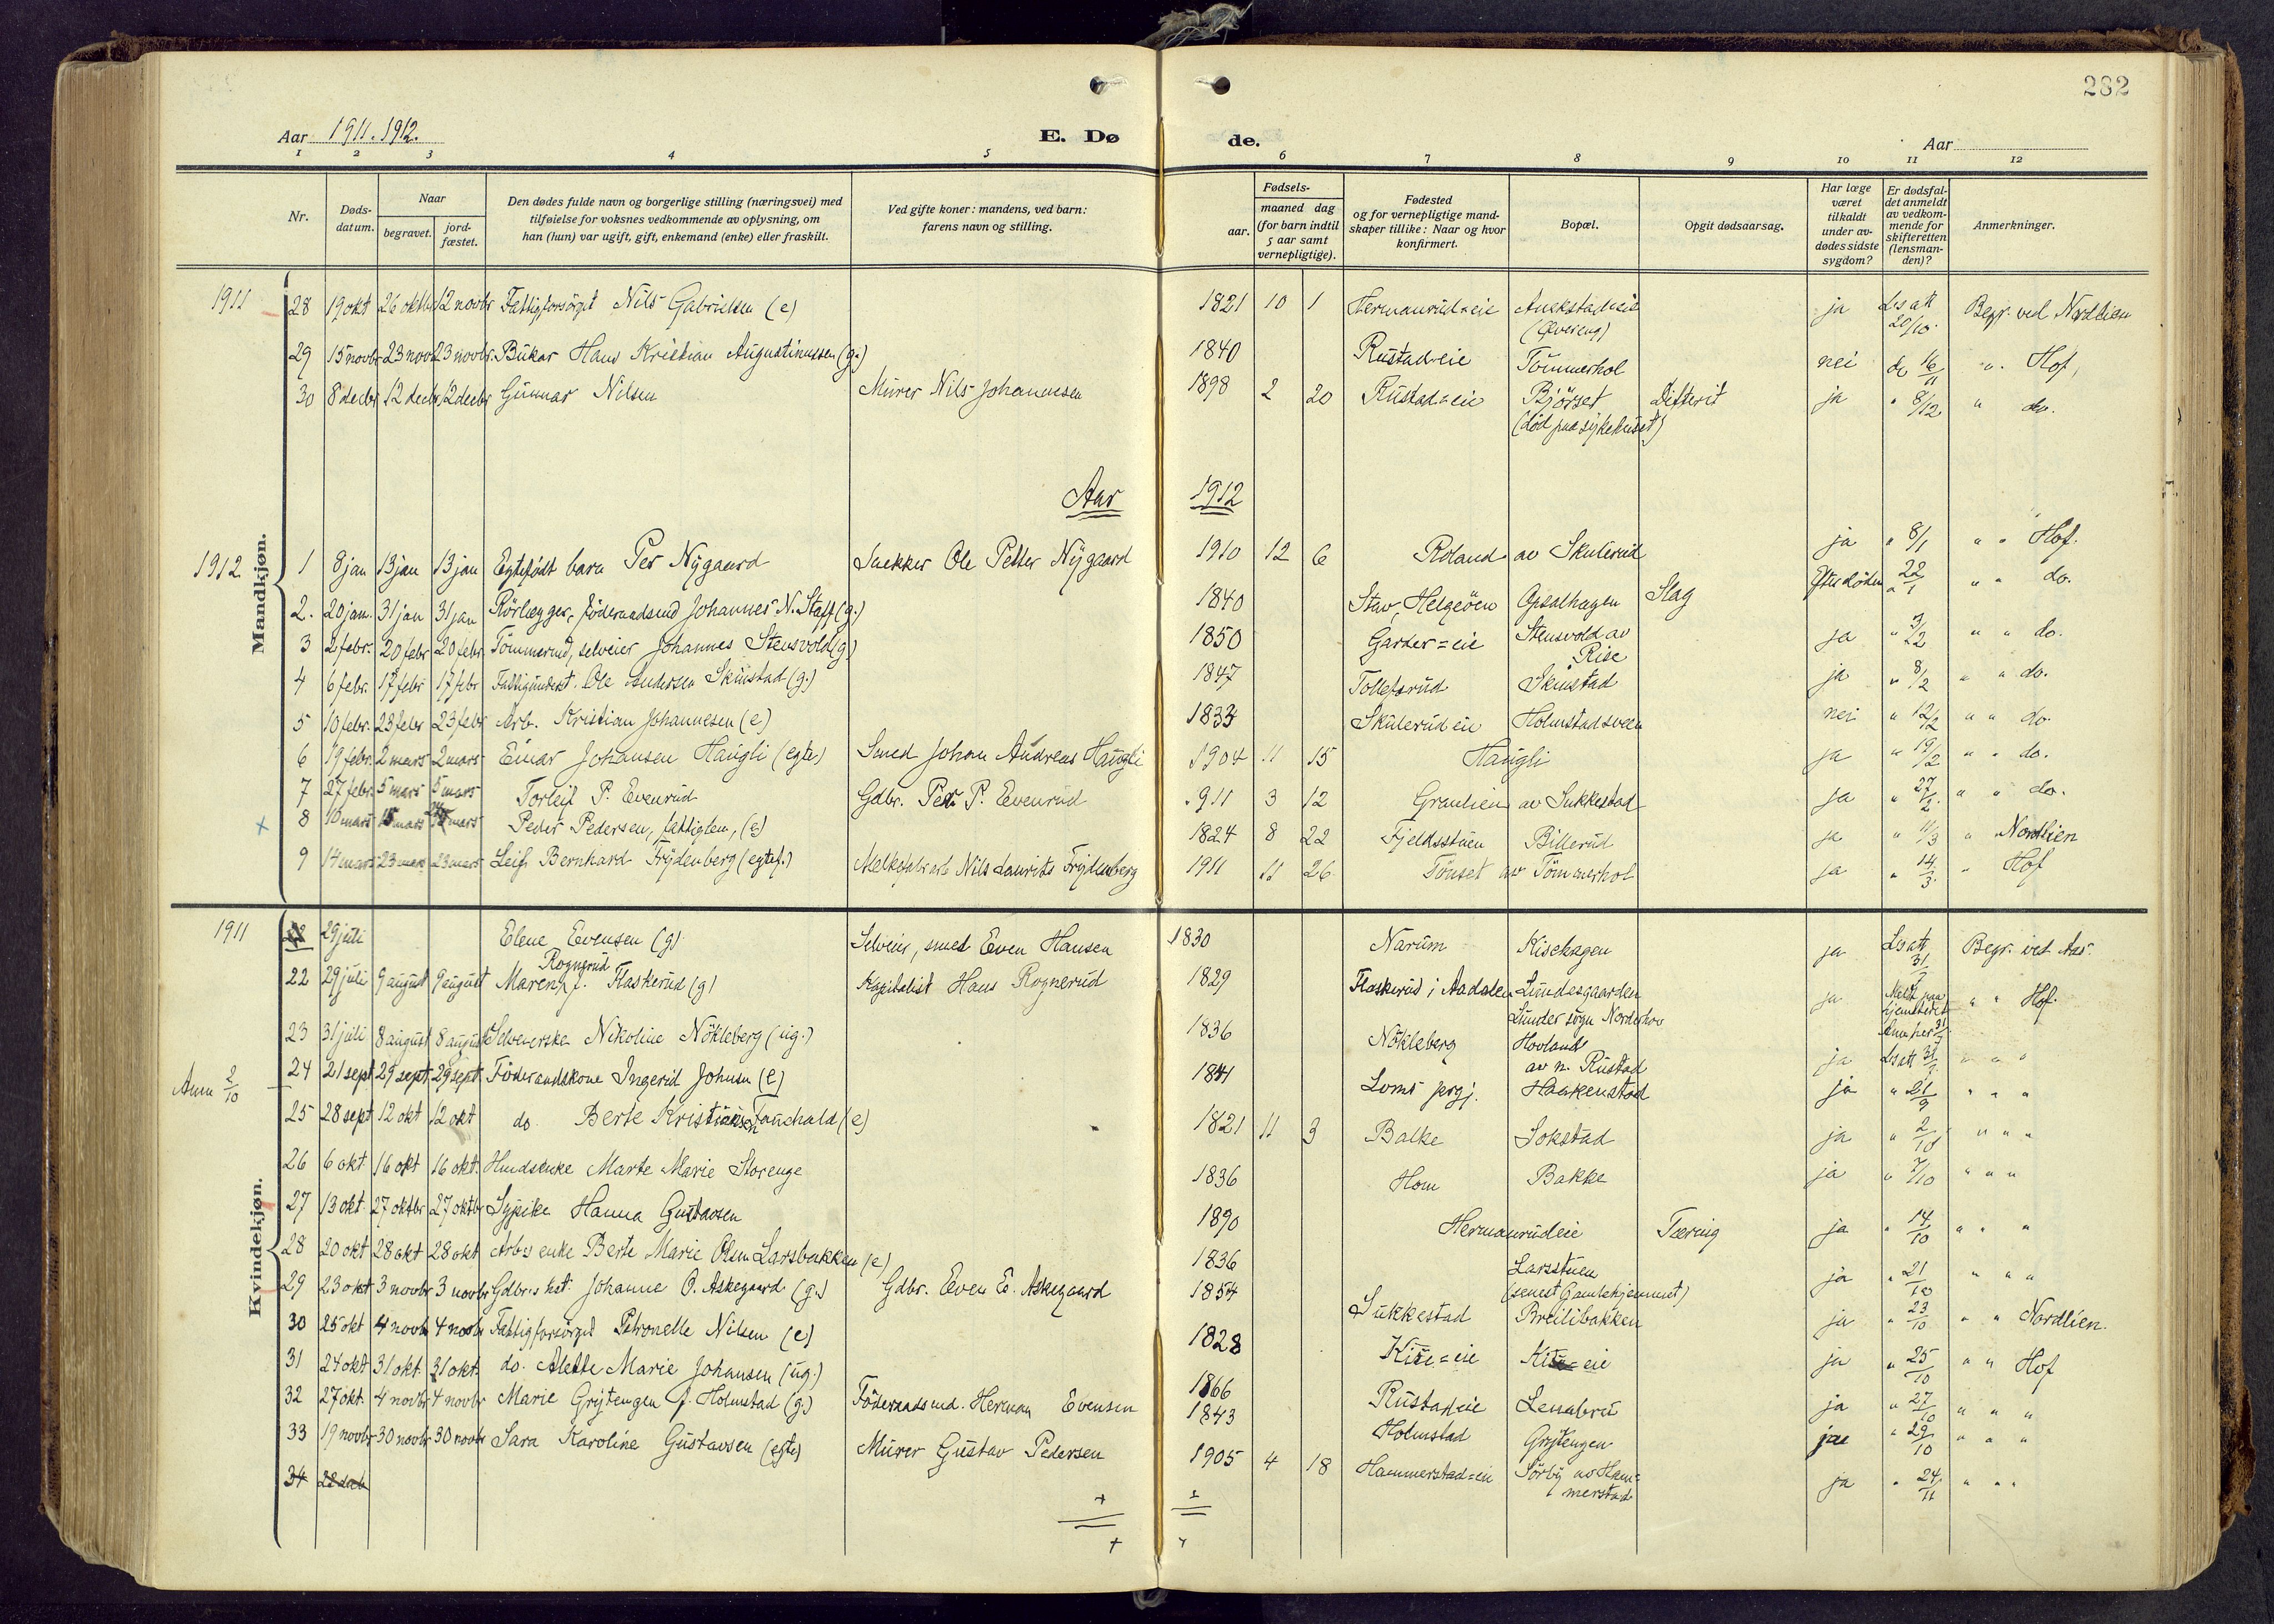 282
Aar 1911. 1912.
E. Dø de.
Aar
1 2 3 4 5 6 7 8 9 10 11 12
Nr.
Døds-datum.
Naar
begravet.
jord-fæstet.
Den dødes fulde navn og borgerlige stilling (næringsvei) med
tilføielse for voksnes vedkommende av oplysning, om
han (hun) var ugift, gift, enkemand (enke) eller fraskilt.
Ved gifte koner: mandens, ved barn:
farens navn og stilling.
Fødsels-
aar.
maaned dag
(for barn indtil
5 aar samt
vernepligtige).
Fødested
og for vernepligtige mand-
skaper tillike: Naar og hvor
konfirmert.
Bopæl.
Opgit dødsaarsag.
Har læge
været
tilkaldt
under av-
dødes sidste
sygdom?
Er dødsfal-
det anmeldt
av vedkom-
mende for
skifteretten
(lensman-
den)?
Anmerkninger.
Mandkjøn.
1911 28 19 okt 26 oktbr 12 novbr Fattigforsörget Nils Gabrielsen (e) 1821 10 1 Hermanrud=eie (Övereng) ja Ls att 20/10. Begr. ved Nordlien
29 15 novbr 23 novb 23 novbr. Hans Kristian Augustinussen (g.) 1840 Rustad=eie Tömmerhol nei do 16/11 " Hof.
30 8 decbr 12 decbr 12 decbr Gunnar Nilsen Murer Nils Johannesen 1898 2 20 Rustad=eie Björset (död paa sykehuset) Difterit ja " 8/12 " do.
Aar 1912
1912 1 8 jan 13 jan 13 jan Egtefödt barn Per Nygaard Snekker Ole Petter Nygaard 1910 12 6 Roland av Skulerud ja " 8/1 " " Hof.
2. 20 jan. 31 jan 31 jan Rörlægger, föderaadsmd Johannes N. Staff (g.) 1840 Stav, Helgeöen Opsalhagen Slag Efter döden 22/1 " " do.
3 2 febr. 20 febr 20 febr. Tömmermd, selveier Johannes Stensvold (g) 1850 Garder=eie Stensvold av Rise ja " 3/2 " " do.
4 6 febr. 17 febr 17 febr Fattigunderst. Ole Andersen Skiustad (g.) 1847 Tollefsrud Skiustad ja " 8/2 " " do.
5 10 febr. 23 febr 23 febr Arb. Kristian Johannesen (e) 1833 Skulerud eie Holmstadsveen nei " 12/2 " " do.
6 19 febr. 2 mars 2 mars Einar Johansen Haugli (egte) Smed Johan Andreas Haugli 1904 11 15 Haugli ja " 19/2 " " do.
7 27 febr. 5 mars 5 mars Torleif P. Evenrud Gdbr. Per P. Evenrud 1911 3 12 Granlien av Sukkestad ja " 27/2. " " do.
8 10 mars 15 mars 24 mars Peder Pedersen, fattiglem, (e) 1824 8 22 Fjeldsstuen Billerud ja " 11/3 " Nordlien
9 14 mars 23 mars 23 mars Leif Bernhard Frydenberg (egtef.) Nils Laurits Frydenberg 1911 11 26 Tönset av Tömmerhol ja " 14/3. " Hof
Kvindekjøn.
1911 29 juli Elene Evensen (g) Selveier, smed Even Hansen 1830 Narum Kisehagen ja Ls att 31/7 Begr. ved Aas.
22 29 juli 9 august 9 august Maren Rognerud f. Flaskerud (g) Kapitalist Hans Rognerud 1829 Flaskerud i Aadalen Lundesgaarden Lunder sogn Norderhov ja Meldt paa hjemstedet " " Hof.
23 31 juli 8 august 8 august Selveierske Nikoline Nökleberg (ug.) 1836 Nökleberg Hovland av n. Rustad ja Ls att 31/7 " " "
Anm 2/10 24 21 sept 29 sept 29 sept Föderaadskone Ingerid Johnsen (e) 1841 Loms prgj. Haakenstad ja " 21/9 " " "
25 28 sept 12 okt 12 okt do Berte Kristiansen Fauchald (e) 1821 11 3 Balke Sokstad ja " 2/10 " " "
26 6 okt 16 okt 16 okt. Husmdsenke Marte Marie Storenge 1836 Hom Bakke ja " 7/10 " " "
27 13 okt. 27 oktbr 27 oktbr Sypike Hanna Gustavsen 1890 Hermanrudeie Tæring ja " 14/10 " " "
28 20 okt 28 okt 28 okt Arbs enke Berte Marie Olsen Larsbakken (e) 1836 Larsstuen (senest Gamlehjemmet) ja " 21/10 " " "
29 23 okt 3 novbr 3 novbr Gdbr.s kst. Johanne O. Askegaard (g.) Gdbr. Even E. Askegaard 1854 Sukkestad Breilibakken ja " 23/10 " " Nordlien.
30 25 okt 4 novbr 4 novbr Fattigforsörget Petronelle Nilsen (e) 1828 Kise=eie Kise=eie ja " 25/10 " " Hof
31 24 okt 31 okt. 31 okt. do. Alette Marie Johansen (ug.) 1866 Rustadeie Lenabru ja " 27/10 " " "
32 27 okt. 4 novbr 4 novbr Marie Grytengen f. Holmstad (g.) Föderaadsmd. Herman Evensen 1843 Holmstad Grytengen ja " 29/10 " " "
33 19 novbr 30 novbr 30 novbr Sara Karoline Gustavsen (egte) Murer Gustav Pedersen 1905 4 18 Hammerstad=eie Sörby av Hammerstad ja " 24/11 " " "
34